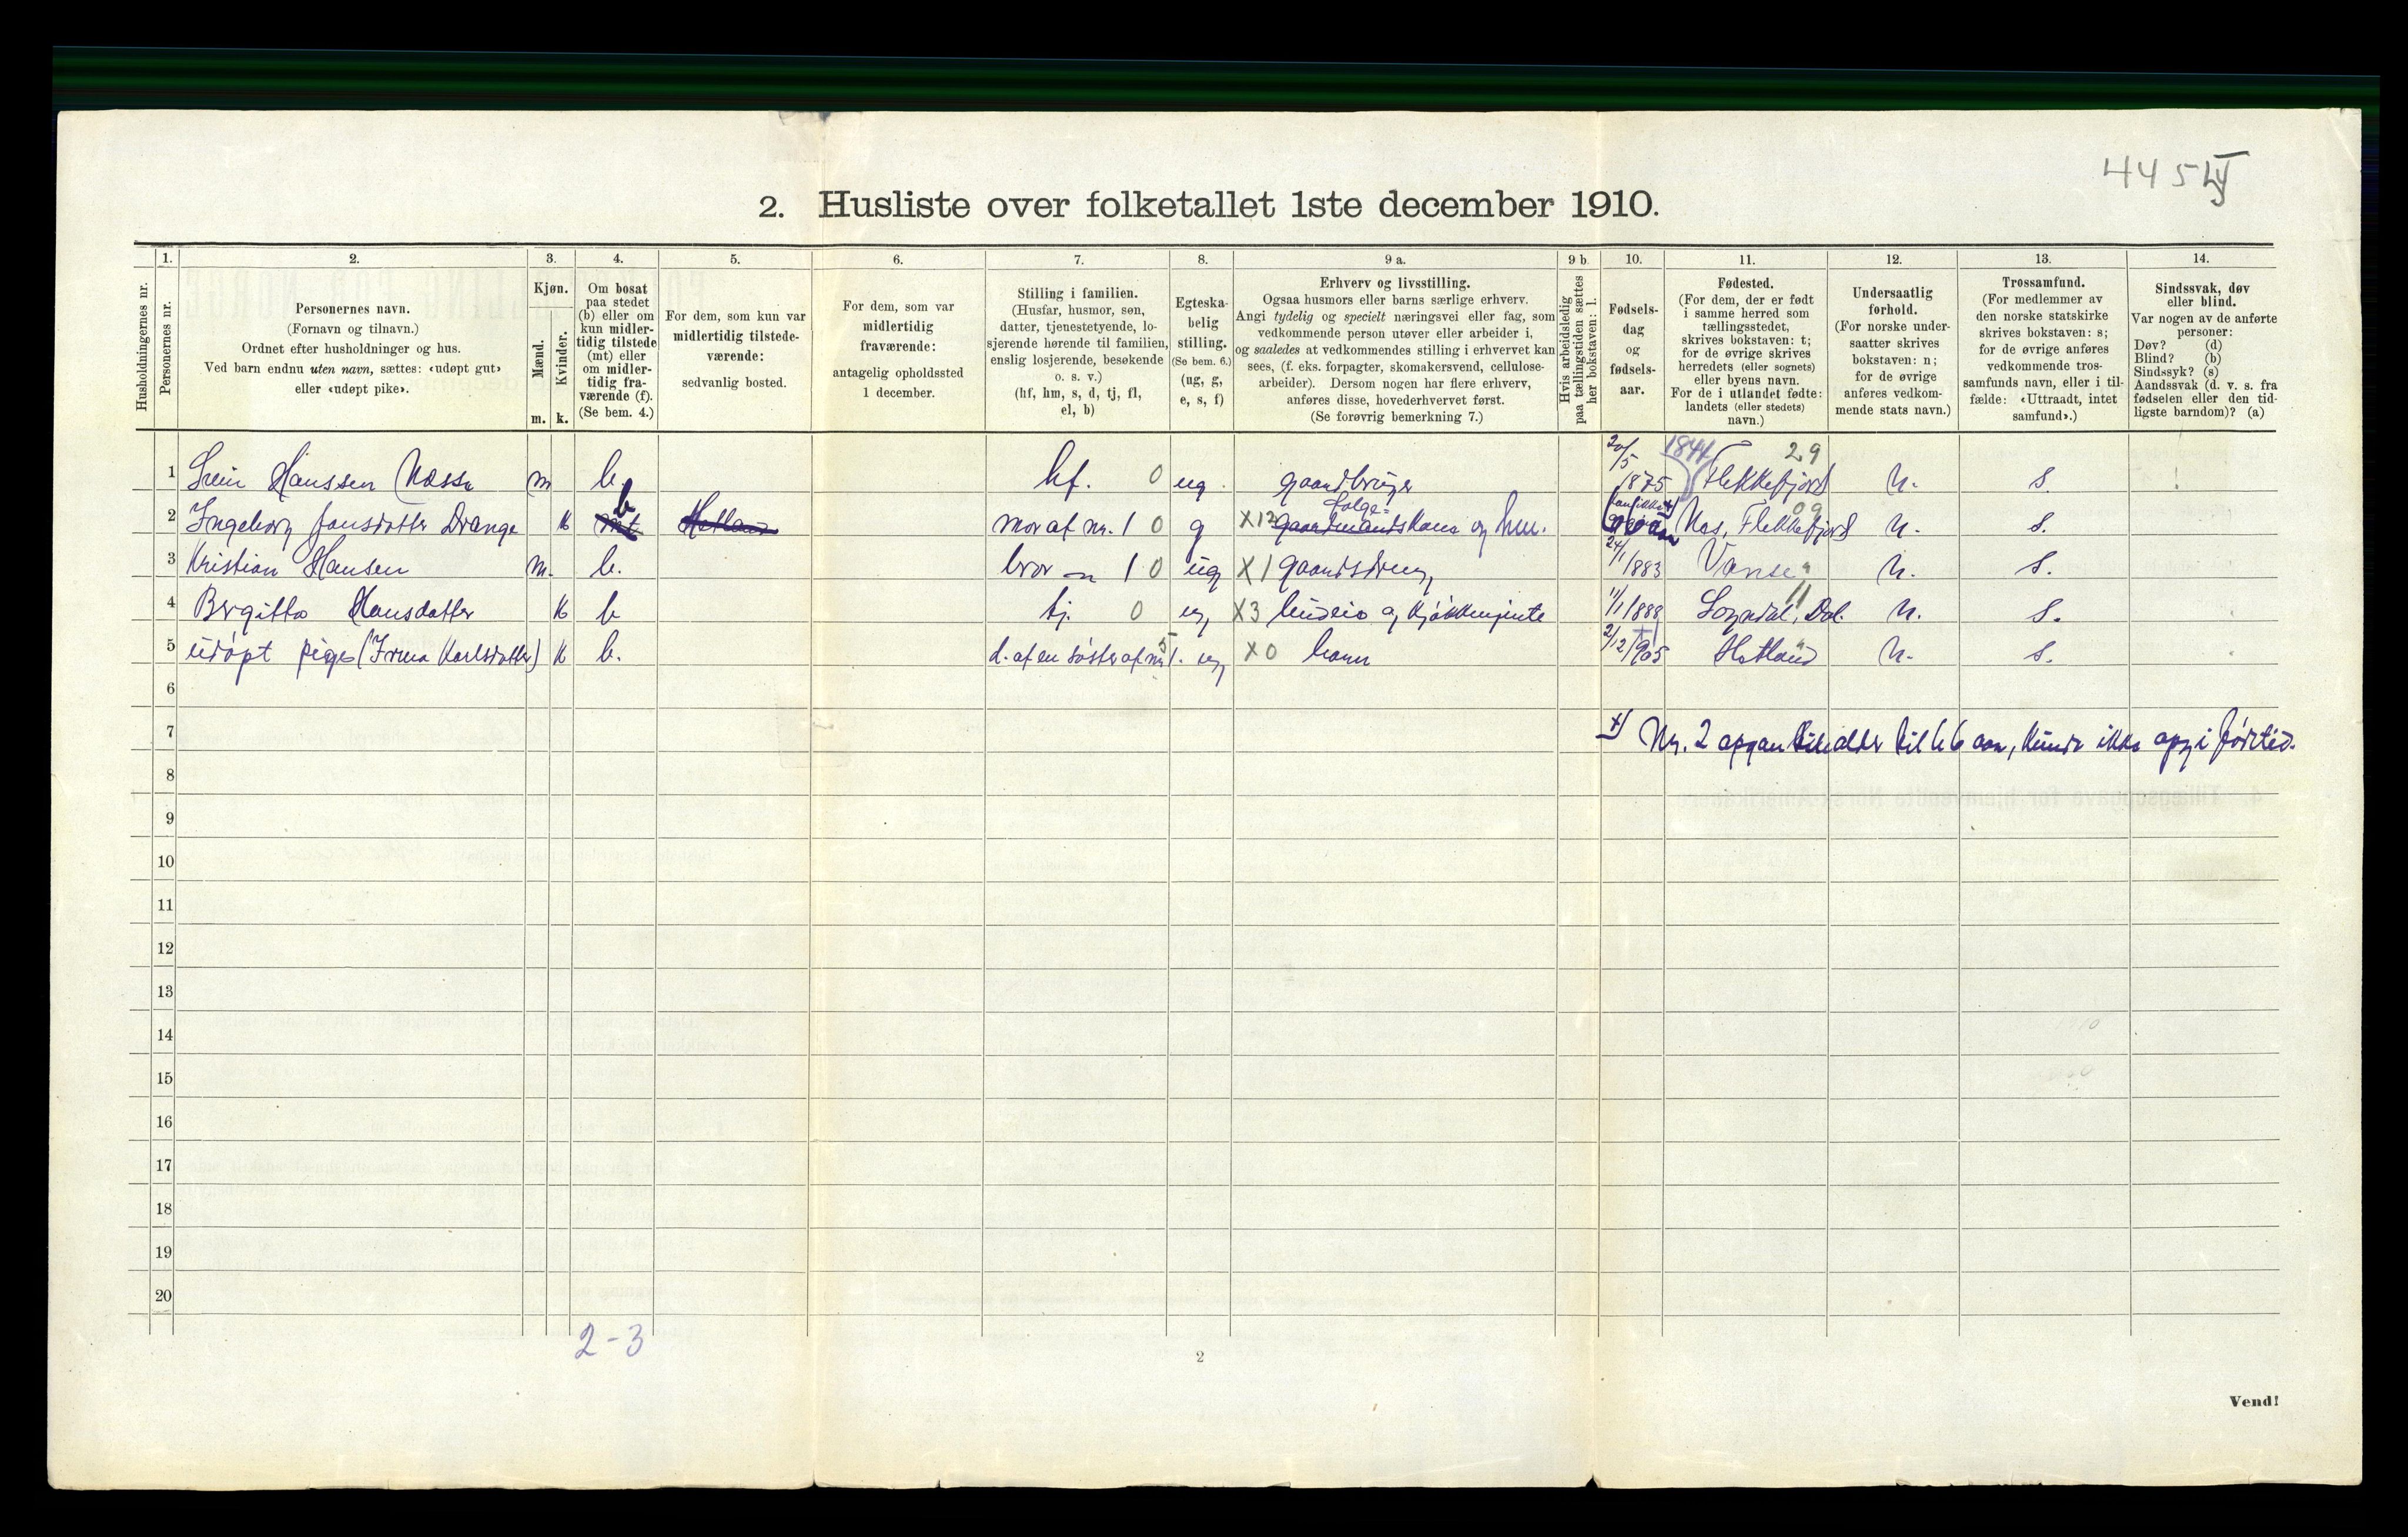 445
2. Husliste over folketallet 1ste december 1910.
Husholdningernes nr.
1. Personernes nr.
2. Personernes navn.
(Fornavn og tilnavn.)
Ordnet efter husholdninger og hus.
Ved barn endnu uten navn, sættes: «udøpt gut»
eller «udøpt pike».
3. Kjøn.
Mænd. m.
Kvinder. k.
4. Om bosat
paa stedet
(b) eller om
kun midler-
tidig tilstede
(mt) eller
om midler-
tidig fra-
værende (f).
(Se bem. 4.)
5. For dem, som kun var
midlertidig tilstede-
værende:
sedvanlig bosted.
6. For dem, som var
midlertidig
fraværende:
antagelig opholdssted
1 december.
7. Stilling i familien.
(Husfar, husmor, søn,
datter, tjenestetyende, lo-
sjerende hørende til familien,
enslig losjerende, besøkende
o. s. v.)
(hf, hm, s, d, tj, fl,
el, b)
8. Egteska-
belig
stilling.
(Se bem. 6.)
(ug, g,
e, s, f)
9 a. Erhverv og livsstilling.
Ogsaa husmors eller barns særlige erhverv.
Angi tydelig og specielt næringsvei eller fag, som
vedkommende person utøver eller arbeider i,
og saaledes at vedkommendes stilling i erhvervet kan
sees, (f. eks. forpagter, skomakersvend, cellulose-
arbeider). Dersom nogen har flere erhverv,
anføres disse, hovederhvervet først.
(Se forøvrig bemerkning 7.)
9 b. Hvis arbeidsledig
paa tællingstiden sættes
her bokstaven: l.
10. Fødsels-
dag
og
fødsels-
aar.
11. Fødested.
(For dem, der er født
i samme herred som
tællingsstedet,
skrives bokstaven: t;
for de øvrige skrives
herredets (eller sognets)
eller byens navn.
For de i utlandet fødte:
landets (eller stedets)
navn.)
12. Undersaatlig
forhold.
(For norske under-
saatter skrives
bokstaven: n;
for de øvrige
anføres vedkom-
mende stats navn.)
13. Trossamfund.
(For medlemmer av
den norske statskirke
skrives bokstaven: s;
for de øvrige anføres
vedkommende tros-
samfunds navn, eller i til-
fælde: «Uttraadt, intet
samfund».)
14. Sindssvak, døv
eller blind.
Var nogen av de anførte
personer:
Døv? (d)
Blind? (b)
Sindssyk? (s)
Aandssvak (d. v. s. fra
fødselen eller den tid-
ligste barndom)? (a)
1 Hanssen m b. hf. 0 ug. gaardbruger 20/5 1875 1844 Flekkefjord 29 n. s.
2 Ingeborg Jonsdotter Drange k mt b Hotland mor af nr. 1 0 g X12 gaardmandskone og hm. Nes, Flekkefjord 09 n. s.
3 Kristian Hansen m. b. bror 1 0 ug X1 gaardsdreng 24/1 1883 Vanse n. s.
4 Bergitta Hansdatter k b tj. 0 ug X3 budeie og kjøkkenjente 11/1 1888 Sogndal, Dal. 11 n. s.
5 udøpt pige (Irma Karlsdatter) k b. d. af en søster af nr 1. 5 ug X0 barn 2/12 1905 Hotland n. s.
6
7 x) Nr. 2 opgav alder til 66 aar, kunde ikke opgi
8
9
10
11
12
13
14
15
16
17
18
19
20
2-3
2
Vend!